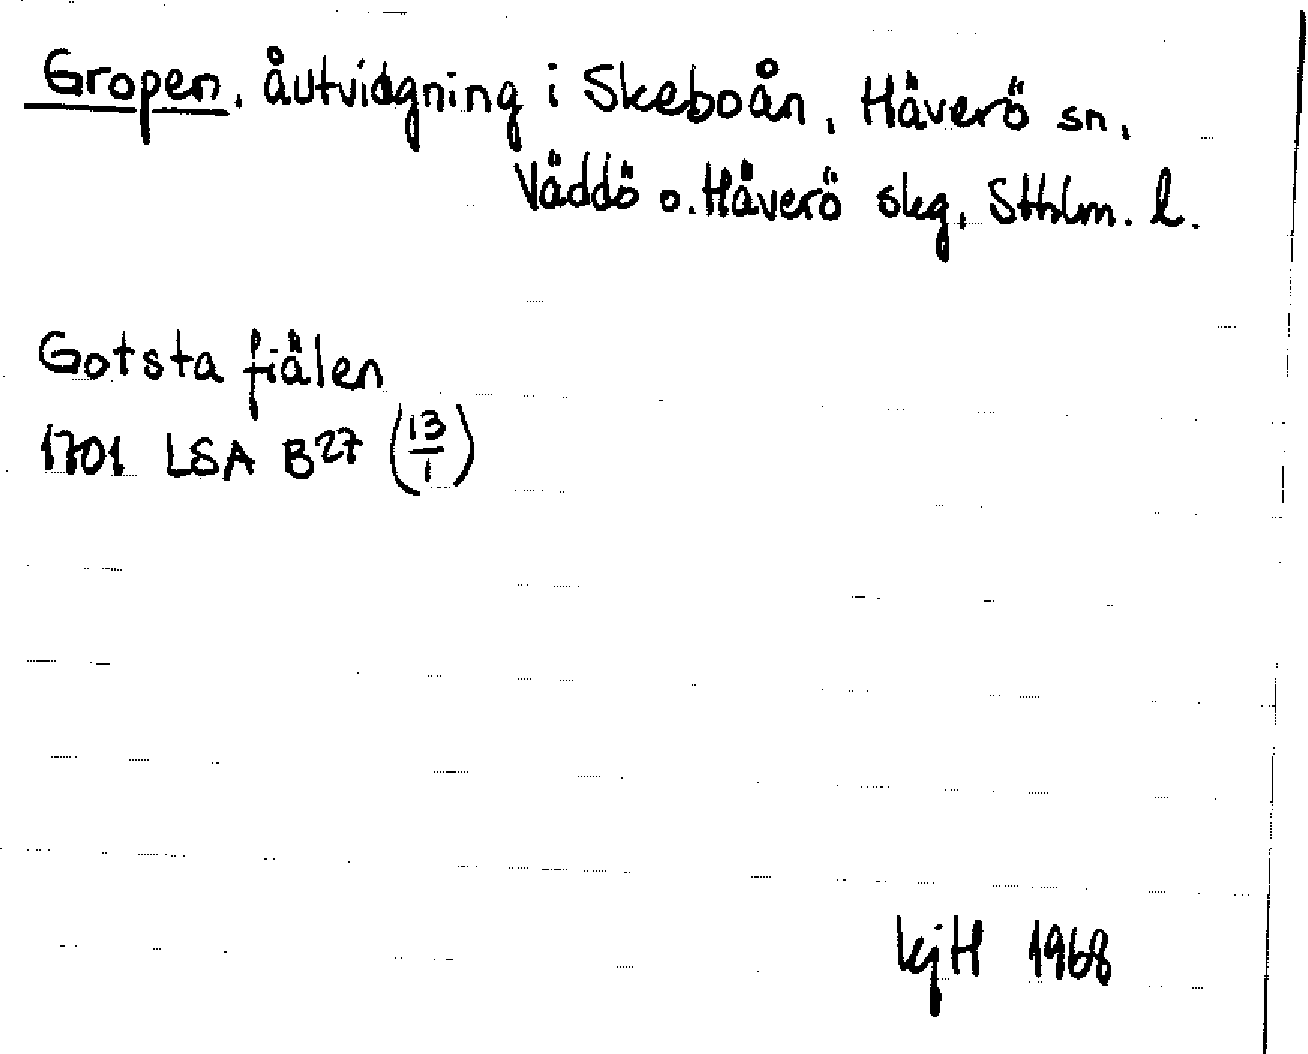 Gropen, åutvidgning i Skeboån, Häverö sn,
Väddö o. Häverö skg, Sthlm. l.
Gotsta fiälen
1701 LSA B27 (13/1)
kjH 1968